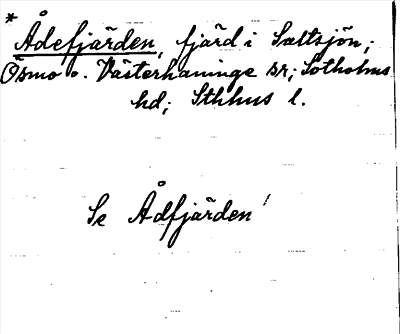 * Ådefjärden, fjärd i Saltsjön;
Ösmo o. Västerhaninge sr; Sotholms
hd; Sthlms l.
Se Ådfjärden